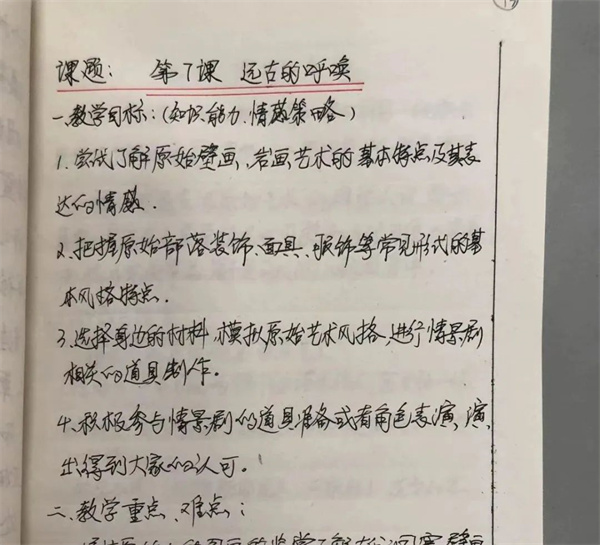 课题: 第7课 远古的呼唤
一、教学目标:(知识、能力、情感策略)
1. 尝试了解原始壁画、岩画艺术的基本特点及其表
达的情感.
2. 把握原始部落装饰、面具、服饰等常见形式的基
本风格特点.
3. 选择身边的材料,模拟原始艺术风格,进行情景剧
相关的道具制作。
4. 积极参与情景剧的道具准备或者角色表演,演
出得到大家的认可。
二、教学重点、难点: